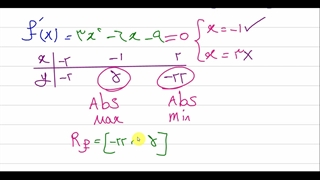 f′(x) = ۳x² - ۶x - ۹ = 0 { x = -۱ ✓
x = ۳ ×
x | -۲ -۱ ۲
y | -۲ ۵ -۲۲
Abs Abs
max min
R_f = [-۲۲ , ۵]